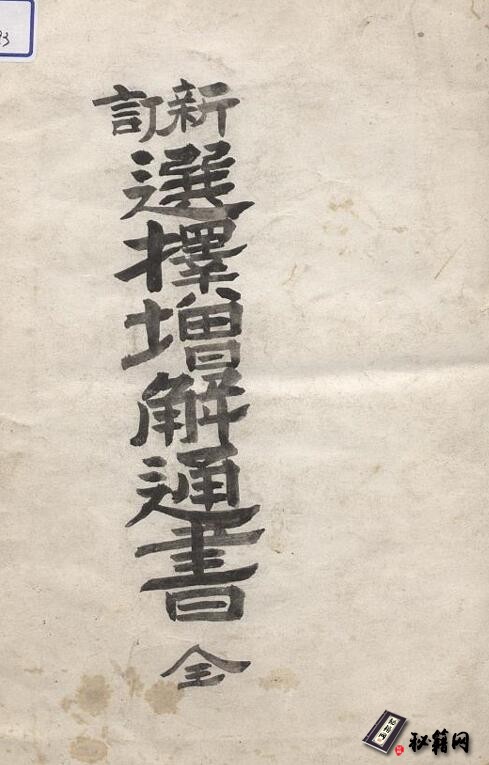 新訂
選擇増解通書
全
秘籍网